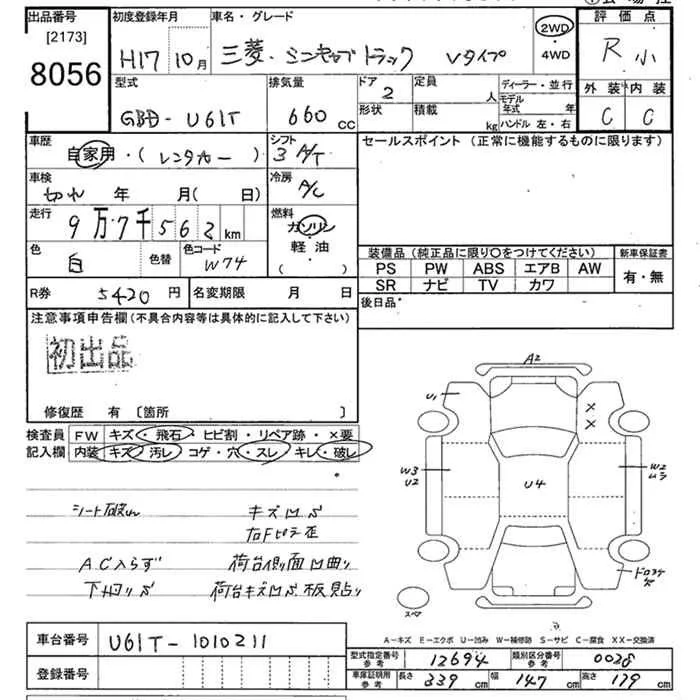 出品番号
[2173]
8056
初度登録年月
H17 10月
車名・グレード
三菱・ミニキャブトラック Vタイプ
2WD
・
4WD
評価点
R 小
外装 内装
C C
型式
GBD-U61T
排気量
660 cc
ドア
2
形状
定員
人
積載
kg
ディーラー・並行
モデル年式 年
ハンドル 左・右
車歴
自家用・(レンタカー)
シフト
3 A/T
車検
切れ 年 月(日)
冷房
A/C
走行
9万7千562km
燃料
ガソリン
軽・油
( ・ )
色
白
色替
色コード
W74
R券 5420 円
名変期限 月 日
セールスポイント (正常に機能するものに限ります)
装備品(純正品に限り〇をつけてください)
新車保証書
PS PW ABS エアB AW
SR ナビ TV カワ
有・無
後日品
注意事項申告欄(不具合内容等は具体的に記入して下さい)
初出品
修復歴 有 〔箇所 〕
検査員記入欄
FW キズ・飛石・ヒビ割・リペア跡・×要
内装 キズ・汚レ・コゲ・穴・スレ・キレ・破レ
シート破れ キズ凹ぷ
右Fピラ歪
AC入らず 荷台側面凹曲り
下廻りサビ 荷台キズ凹ぷ 板貼り
A2
U1
×
×
W3
U2
U4
W2
ムラ
ドロヨケ
欠
スペア
A-キズ E-エクボ U-凹み W-補修跡 S-サビ C-腐食 XX-交換済
車台番号 U61T-1010211
登録番号
型式指定番号 参考 12694
類別区分番号 参考 0028
車庫証明用 参考 長さ 339 cm 幅 147 cm 高さ 179 cm